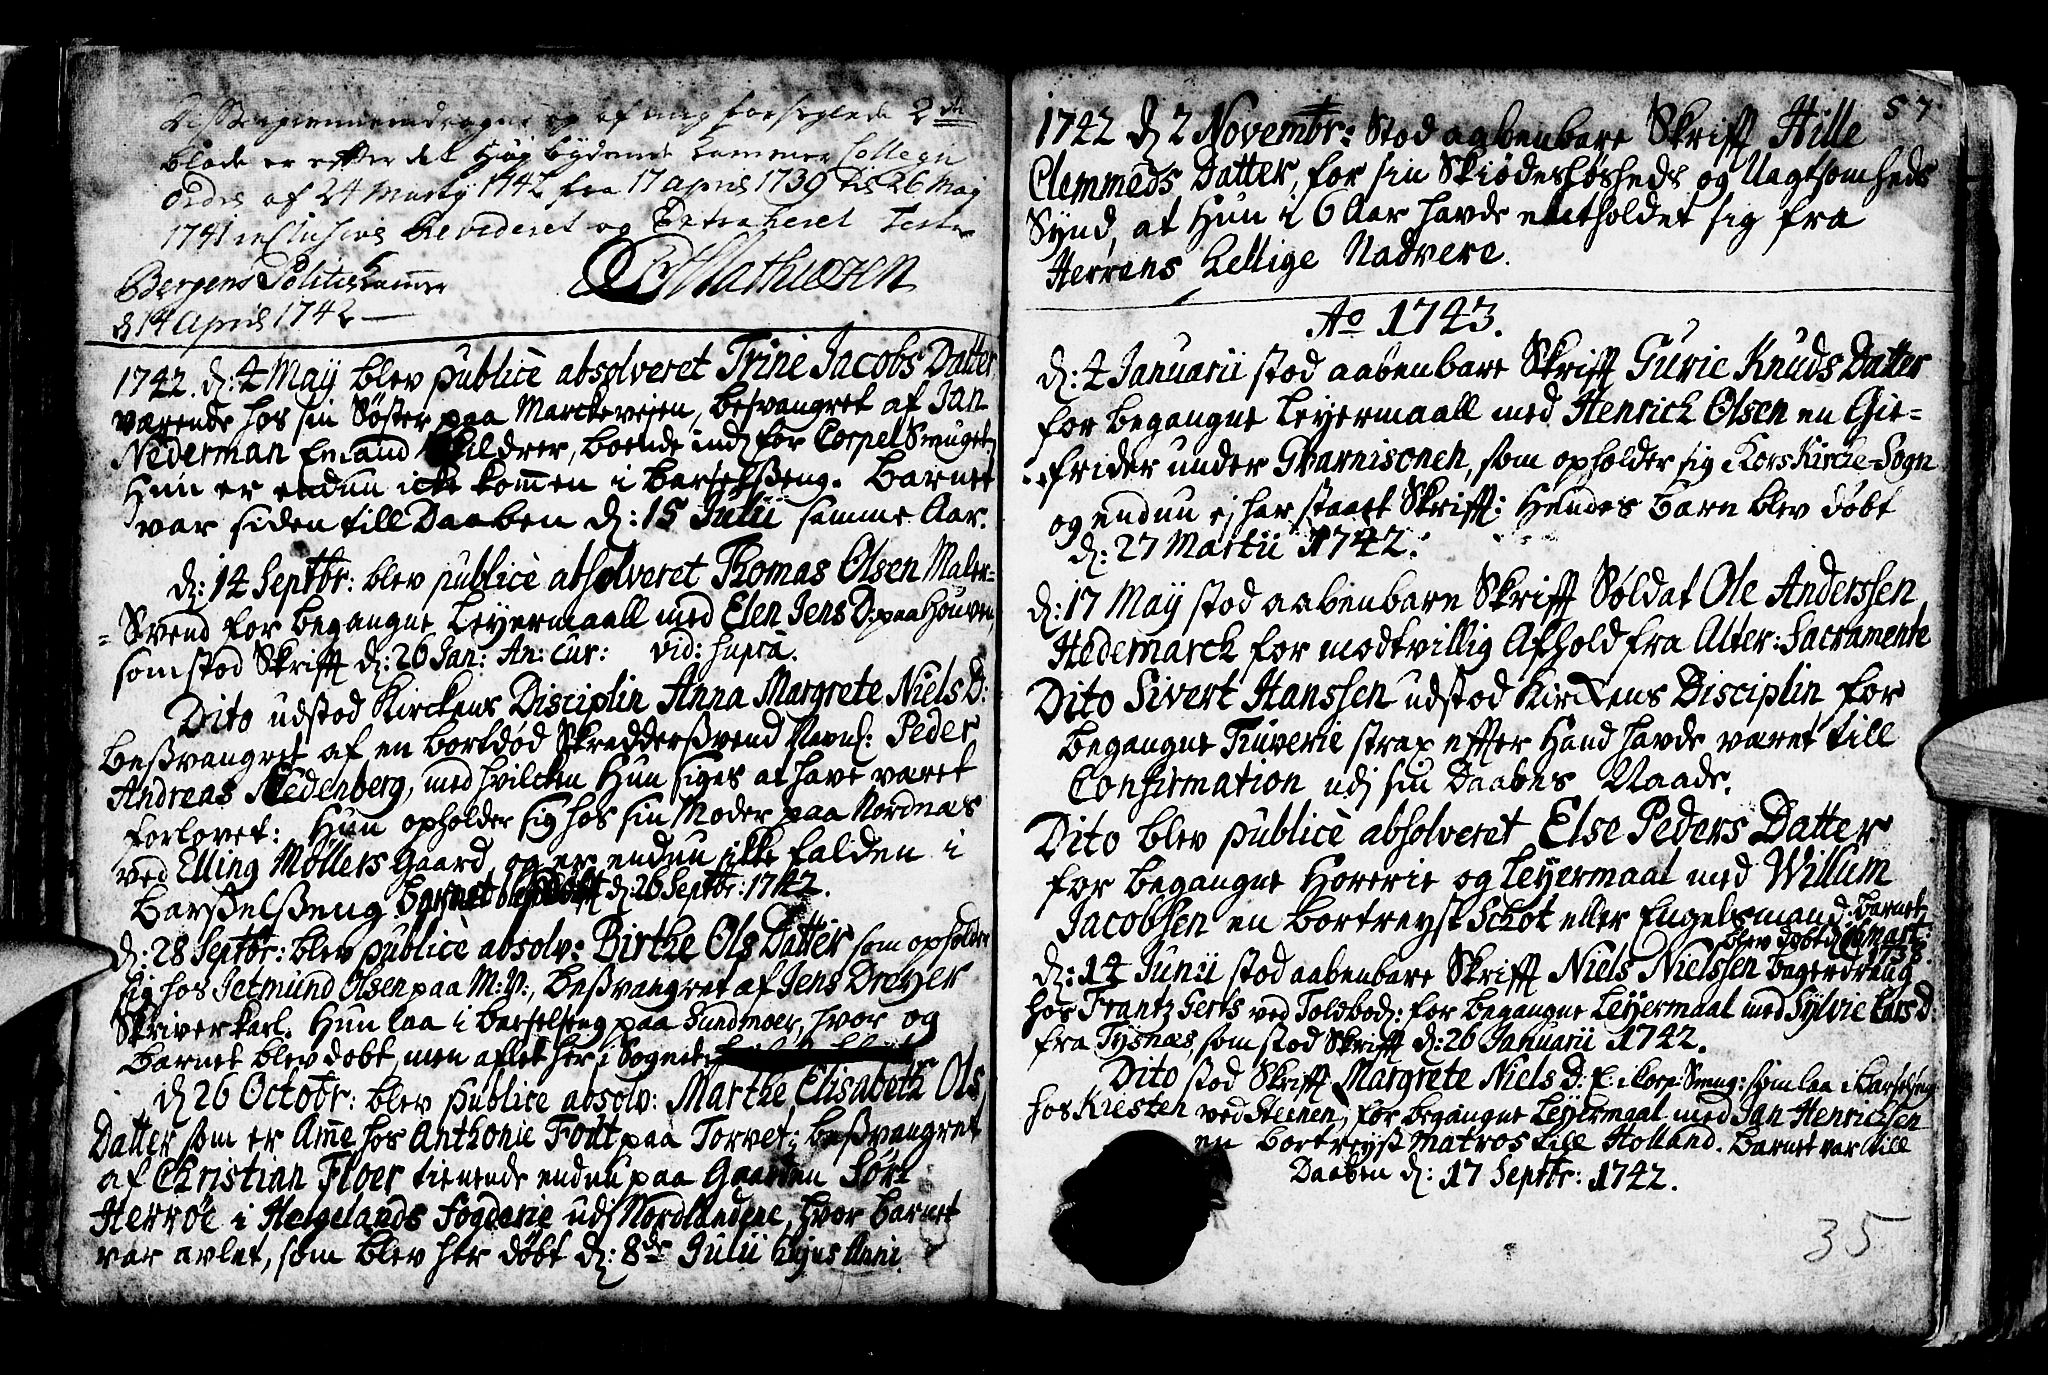 blade er efter det Høy bydende Cammer Collegii
Ordre af 24 Martij 1742 fra 17 April 1739 til 26 Maj
1741 inclusive Revideret og Extraheret Test.
Bergens Politie Kammer
d 14 April 1742
1742. d: 4 Maij blev publicè absolveret Trine Jacobs Datter
værende hos sin Søster paa Marckeveien, besvangret af Jan
Nederman boende ind for Corpel Smuget,
Hun er endnu icke kommen i barselsseng. Barnet
var siden till Daaben d: 15 Julii samme Aar.
d: 14 Septbr: blev publicè absolveret Thomas Olsen Maler=
=Svend for begangne Leyermaall med Elen Jens D: paa Houven,
som stod Skrifft d: 26 Jan: An: cur: vid: supra.
Dito udstod Kirckens Disciplin Anna Margrete Niels D:
besvangret af en bortdød Skreddersvend Navnl: Peder
Andreas Nedenberg, med hvilcken Hun siges at have været
forlovet: Hun opholder sig hos sin Moder paa Nordnæs
ved Elling Møllers Gaard, og er endnu ikke falden i
Barselsseng. Barnet blev døbt d: 26 Septbr: 1742.
d: 28 Septbr: blev publicè absolv: Birthe Ols Datter som opholder
sig hos Jetmund Olsen paa M: V:, besvangret af Jens Dreyer
Skriverkarl. Hun laa i barselseng paa Sundmoer, hvor og
Barnet blev døbt, men aflet her i Sognet
d 26 Octobr: blev publicè absolv: Marthe Elisabeth Ols
Datter som er Amme hos Anthonie Fodt paa Torvet; besvangret
af Christian Floer tienende endnu paa Gaarden Søre
Herrøe i Helgelands Fogderie udj Nordlandene, hvor barnet
var avlet, som blev her døbt d: 8de Julii hujus Anni.
57
1742 d 2 Novembr: stod aabenbare Skrifft Hille
Clemmeds Datter, for sin Skiødesløsheds og Uagtsomheds
Synd, at Hun i 6 Aar havde entholdet sig fra
Herrens Hellige Nadvere.
Ao 1743.
d: 4 Januarii stod aabenbare Skrifft Gurie Knuds Datter
for begangne Leyermaall med Henrich Olsen en Gie=
frider under Gvarnisonen, som opholder sig i Kors Kircke-Sogn
og endnu ej har staaet Skrifft: Hendes Barn blev døbt
d: 27 Martii 1742.
d: 17 Maij stod aabenbare Skrifft Soldat Ole Anderssen
Hedemarck for modtvillig Afhold fra Alter: Sacramente
Dito Sivert Hanssen udstod Kirckens Disciplin for
begangne Tiuverie strax efter Hand havde været till
Confirmation udj sin Daabes Naade.
Dito blev publicè absolveret Else Peders Datter
for begangne Horerie og Leyermaal med Willum
Jacobsen en bortreyst Schot eller Engelsmand: Barnet
blev døbt d Mart: 1738.
d: 14 Junii stod aabenbare Skrifft Niels Nielssen bagerdreng
hos Frantz Gerts ved Tolsbod: for begangne Leyermaal med Sylvie Lars D:
fra Tysnæs, som stod Skrifft d: 26 Januarii 1742.
Dito stod Skrifft Margrete Niels D: E: i Korp: Smug: som laa i barselseng
hos Kiesten ved Steenen, for begangne Leyermaal med Jan Henrichsen
en bortreyst Matros till Holland. Barnet var till
Daaben d: 17 Septbr: 1742.
35